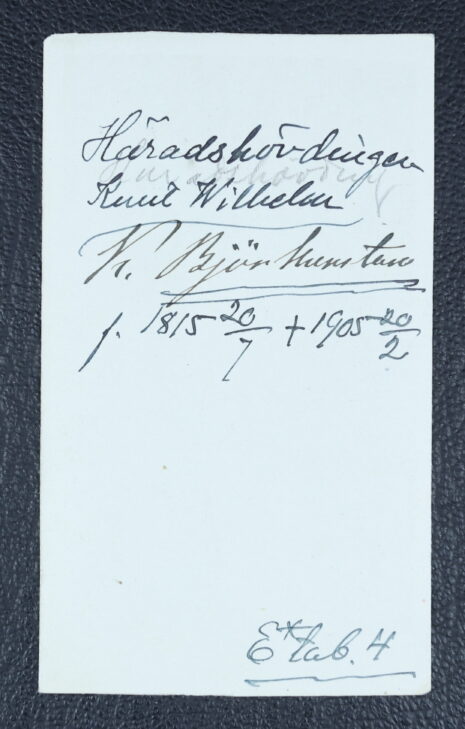 Häradshövdingen
Knut Wilhelm
K. Björkunstam
f. 1815 20/7 + 1905 20/2
E* tab. 4